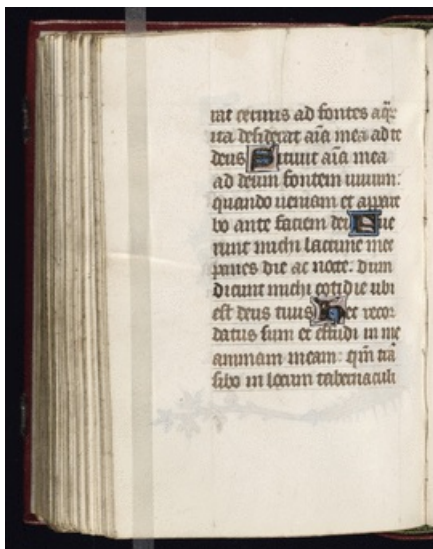 rat ceruus ad fontes aq̄r
ita desiderat aīa mea ad te
deus Sitiuit aīa mea
ad deum fontem uiuum:
quando ueniam et appare
bo ante faciem dei Fue
runt michi lacrime mee
panes die ac nocte. dum
dicunt michi cotidie ubi
est deus tuus Hec recor
datus sum et effudi in me
animam meam: qm̄ trā
sibo in locum tabernaculi